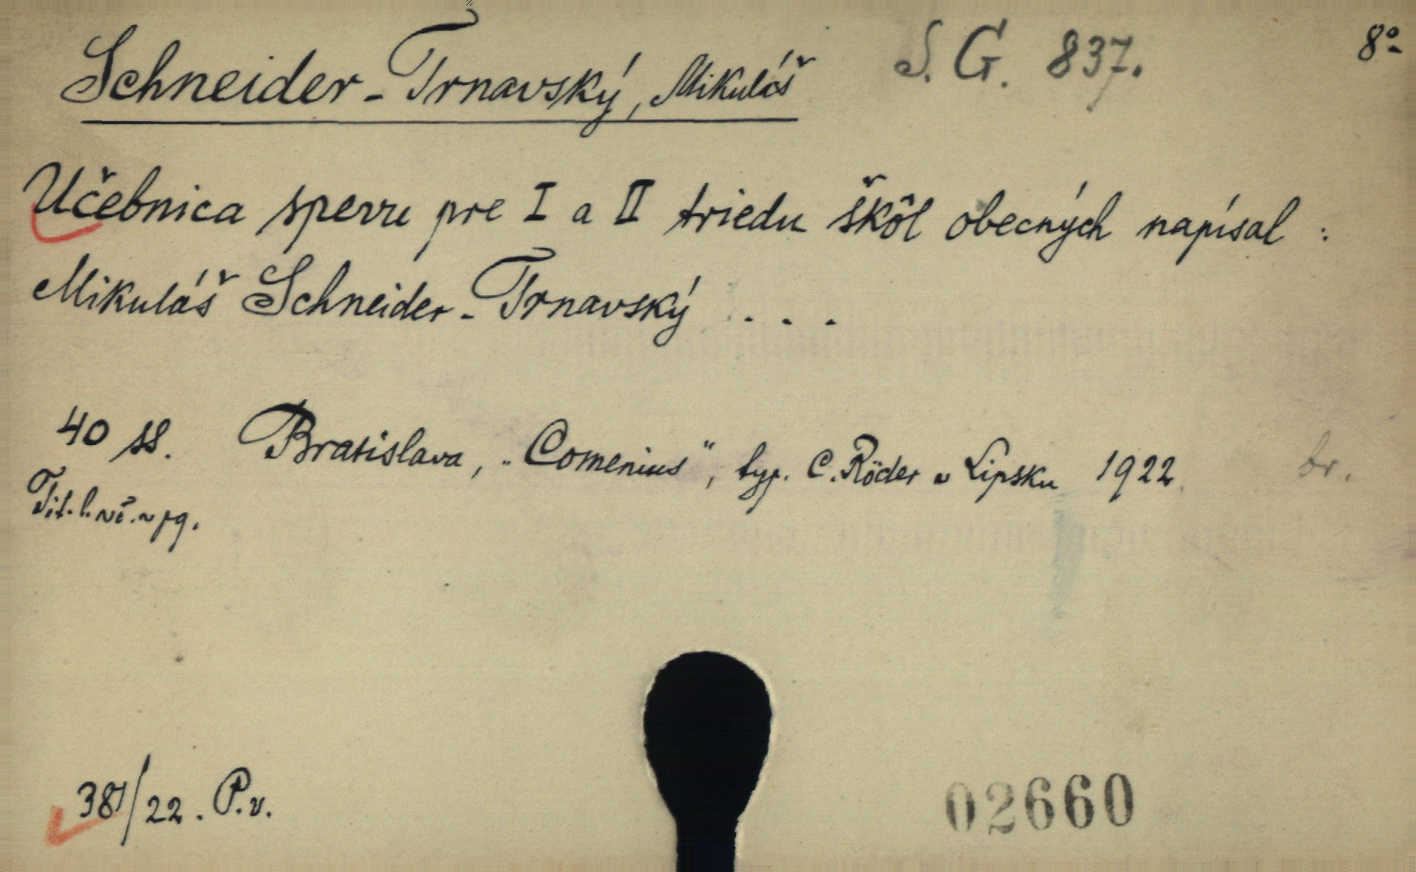 Schneider-Trnavský, Mikuláš S. G. 837. 8°
Učebnica spevu pre I a II triedu škôl obecných napísal :
Mikuláš Schneider-Trnavský . . .
40 ss. Bratislava, „Comenius", typ. C. Röder v Lipsku 1922 br.
Tit. l.
/22. P.v.
02660